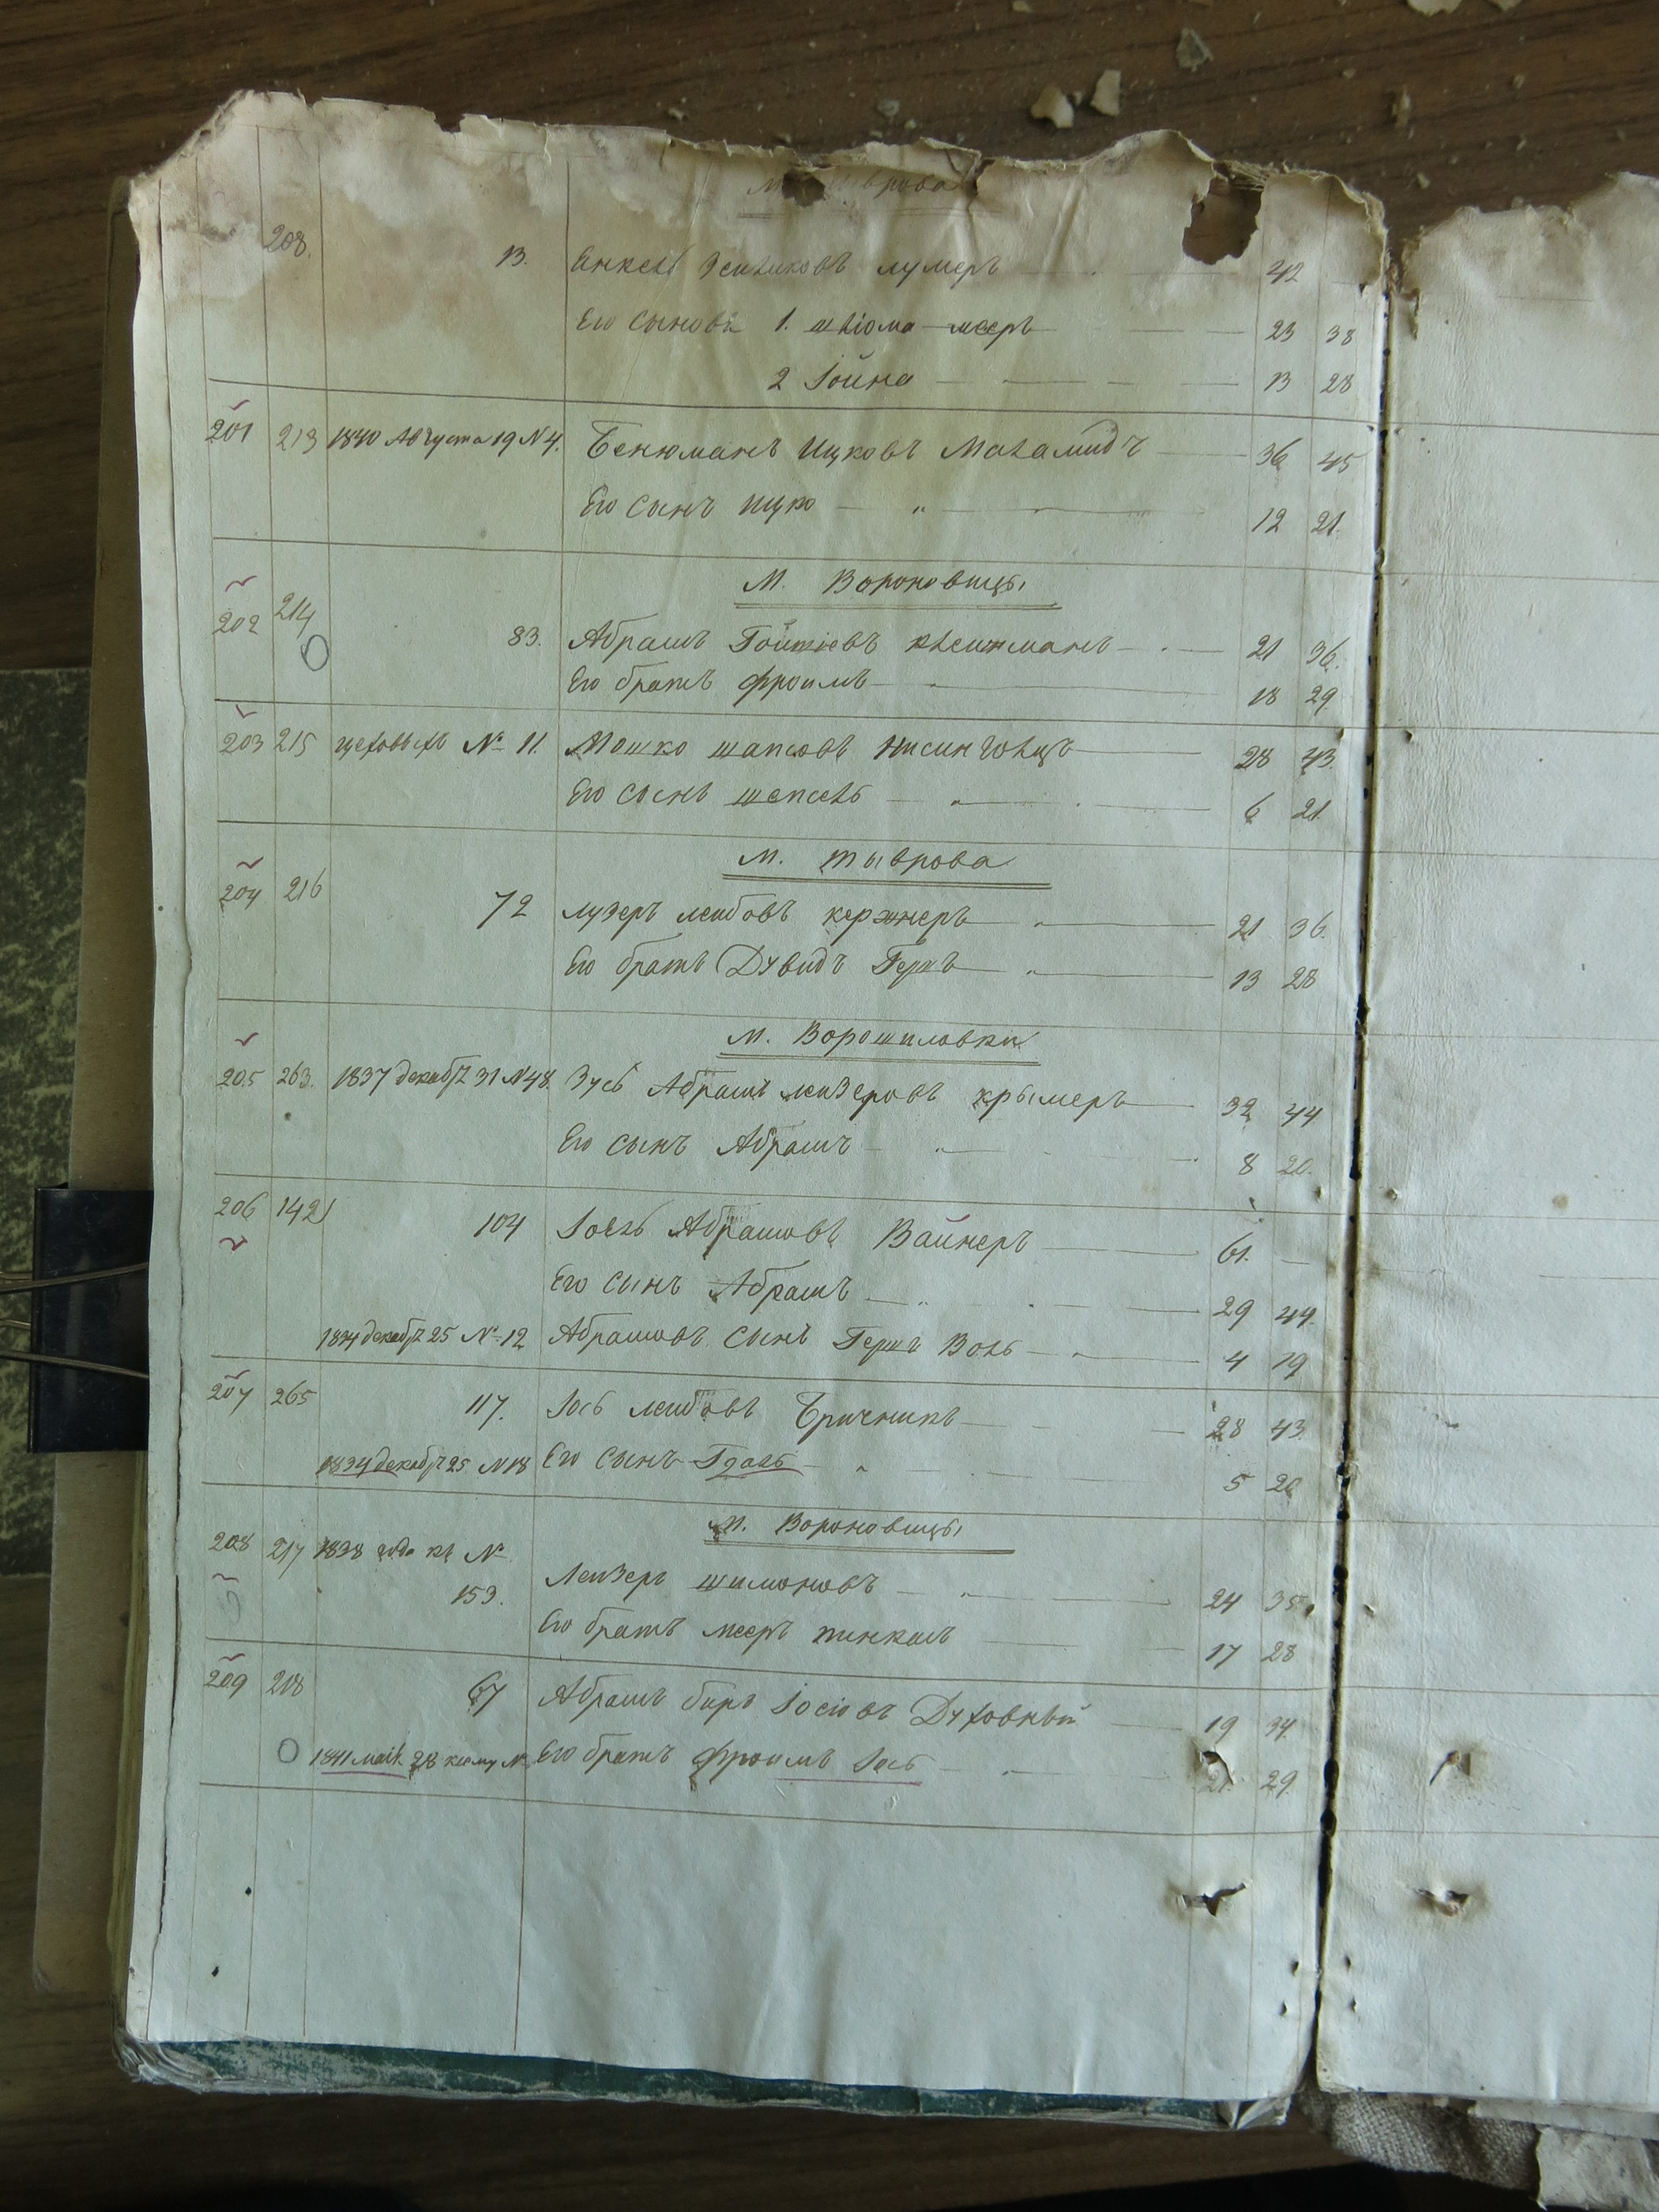 208. 13. 42
Его сыновья 1. Шліома Мееръ 23 38
2 Іойна 13 28
201 213 1840 Августа 19 N 4. Бенюманъ Ицковъ Маламидъ 36 45
Его сынъ Ицко " 12 21.
М. Вороновицы
202 214 83. Абрамъ Клейтманъ 21 36.
Его братъ Фроимъ 18 29
203 215 цеховыхъ № 11. Мошко Шапсовъ 28 43.
Его сынъ Шепсель 6 21.
М. Тыврова
204 216 72 Лузеръ Лейбовъ Кержнеръ 21 36.
Его братъ Дувидъ Гершъ 13 28
М. Ворошиловки
205 263. 1837 декабря 31 N 48. Зусь Абрамъ Лейзеровъ Крымеръ 32 44
Его сынъ Абрамъ 8 20.
206 1421 104 Іоель Абрамовъ Вайнеръ 61. —
Его сынъ Абрамъ 29 44.
1834 декабря 25 № 12 Абрамовъ сынъ Гершъ Воль 4 19
207 265 117. Іось Лейбовъ Бричникъ 28 43
1834 декабря 25 N 18 Его сынъ 5 20
М. Вороновицы
208 217 1838 года къ №
153. Лейзеръ Шимоновъ 24 35
Его братъ Мееръ Пинкасъ 17 28
209 218 67 Абрамъ Беръ Іосіовъ Духовный 19 34.
1841 мая 28 Его братъ Фроимъ Іось 21. 29.